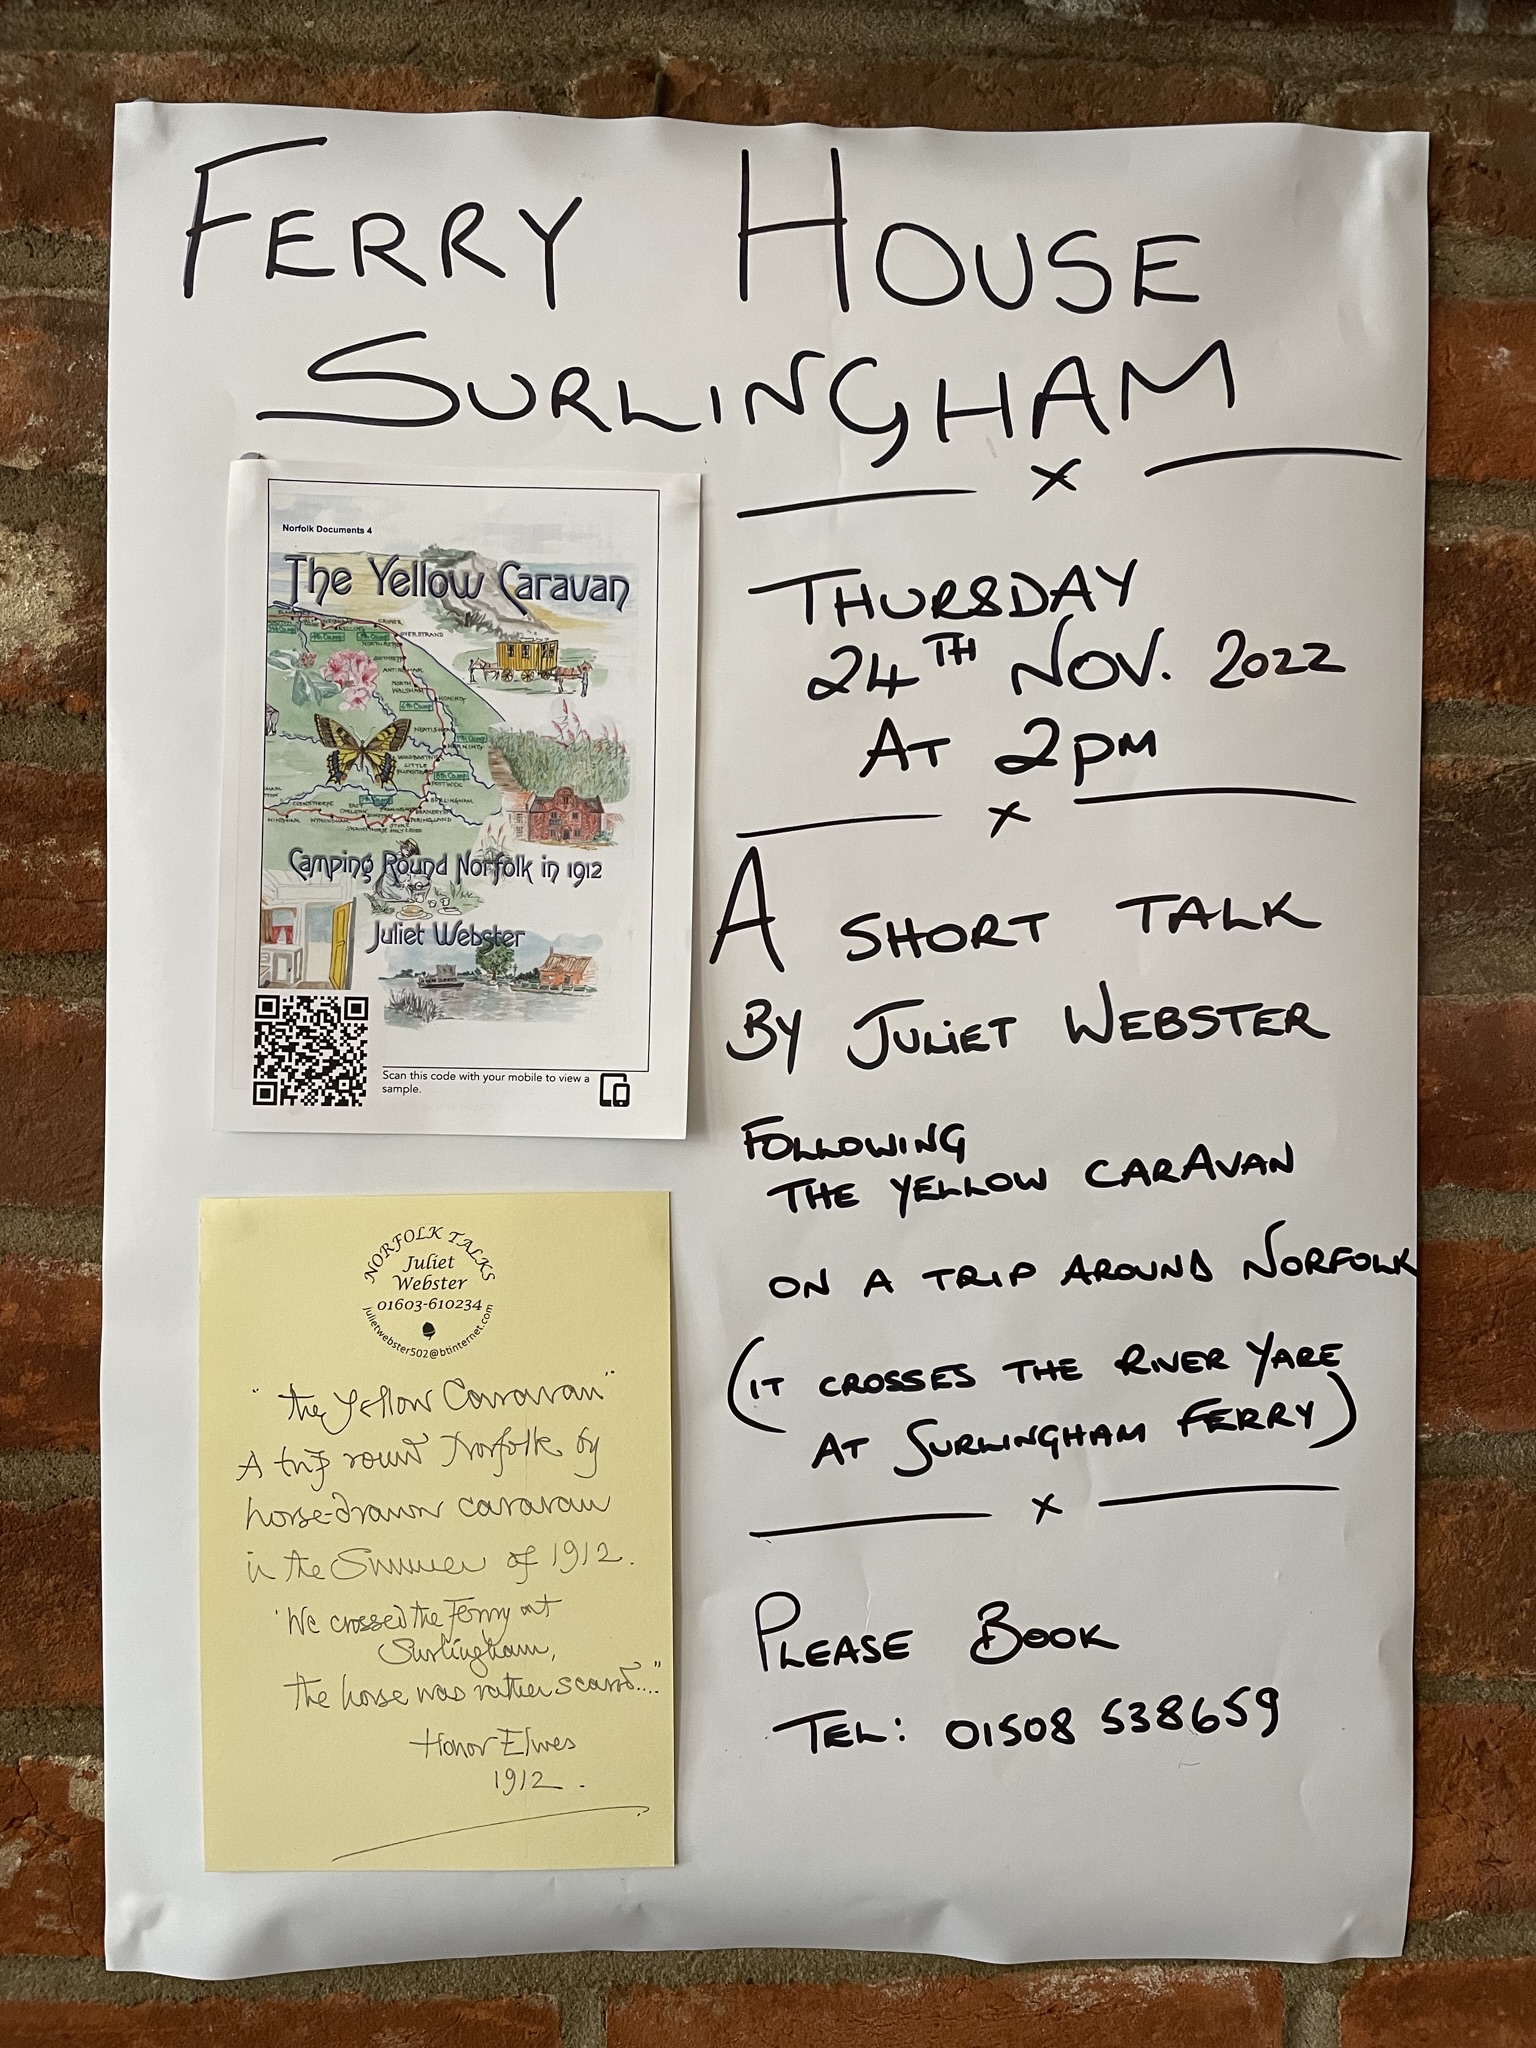 FERRY HOUSE
SURLINGHAM
x
THURSDAY
24TH NOV. 2022
AT 2PM
x
A SHORT TALK
BY JULIET WEBSTER
FOLLOWING
THE YELLOW CARAVAN
ON A TRIP AROUND NORFOLK
(IT CROSSES THE RIVER YARE
AT SURLINGHAM FERRY)
x
PLEASE BOOK
TEL: 01508 538659
Norfolk Documents 4
The Yellow Caravan
CROMER
OVERSTRAND
NORTH
WALSHAM
HONING
6th Camp
LITTLE
POSTWICK
SURLINGHAM
WYMONDHAM
Camping Round Norfolk in 1912
Juliet Webster
Scan this code with your mobile to view a
sample.
NORFOLK TALKS
Juliet
Webster
01603-610234
julietwebster502@btinternet.com
"the Yellow Caravan"
A trip round Norfolk by
horse-drawn caravan
in the Summer of 1912.
'We crossed the Ferry at
Surlingham,
the horse was rather scared...."
Honor Elwes
1912.